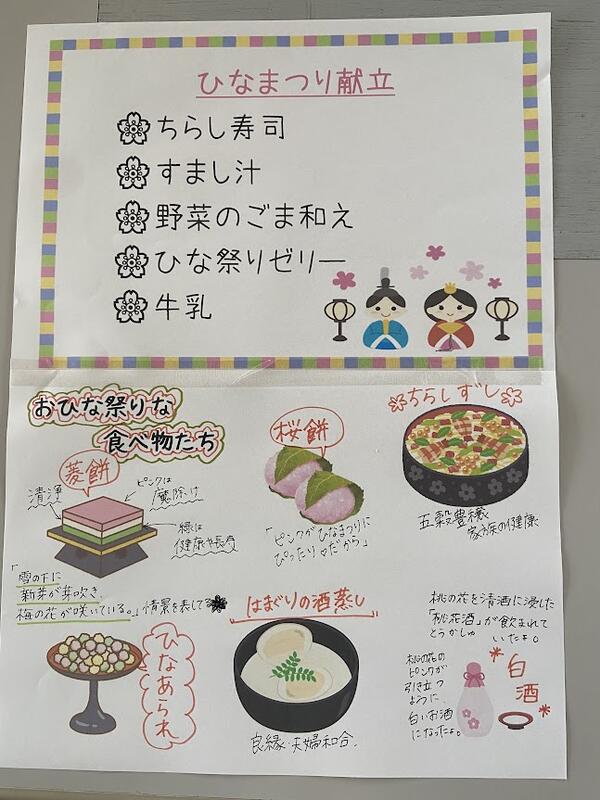 ひなまつり献立
ちらし寿司
すまし汁
野菜のごま和え
ひな祭りゼリー
牛乳
おひな祭りな
食べ物たち
菱餅
清浄
ピンクは
魔除け
緑は
健康や長寿
「雪の下に
新芽が芽吹き、
梅の花が咲いている。」情景を表してる
桜餅
「ピンクがひなまつりに
ぴったり♡だから」
ちらしずし
五穀豊穣
家族の健康
ひなあられ
はまぐりの酒蒸し
良縁・夫婦和合。
桃の花を清酒に浸した
「桃花酒」が飲まれて
とうかしゅ いたよ。
白酒
桃の花の
ピンクが
引き立つ
ように
白いお酒
になったよ。